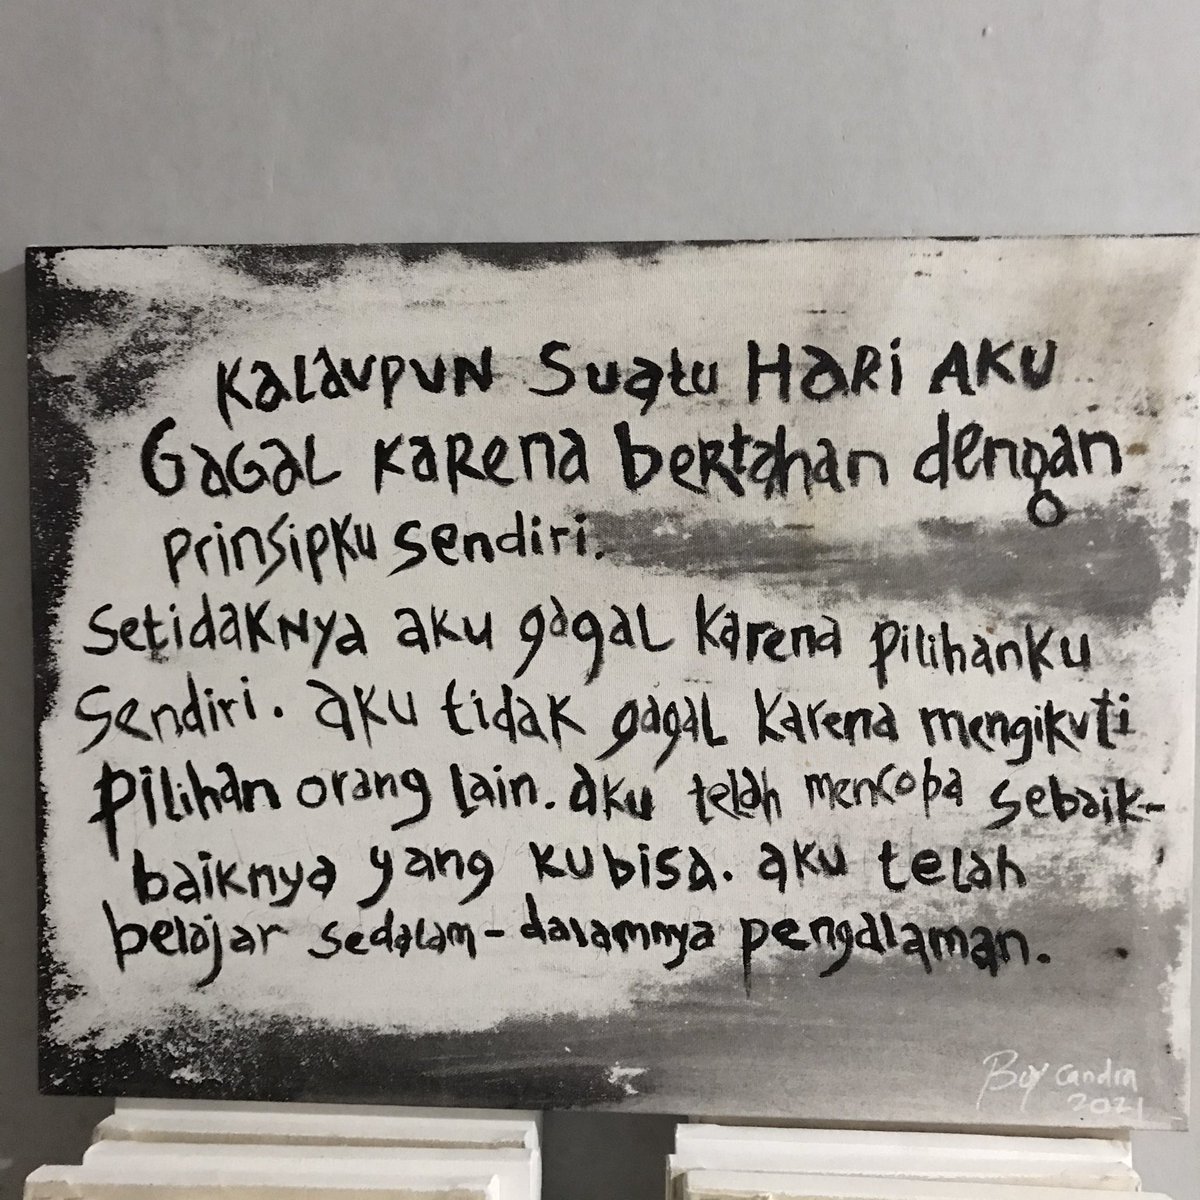 KalauPUN Suatu HaRi AKU
GaGaL KaRena beRtahan dengan
PrinsipKu sendiri.
SetidaKNya aku gagaL Karena PiLihanKu
Sendiri. aku tidaK gagaL Karena mengikuti
PiLihan orang Lain. aku telah mencoba sebaik-
baiknya yang kubisa. aku teLah
belajar sedalam-dalamnya pengalaman.
Boy candra
2021